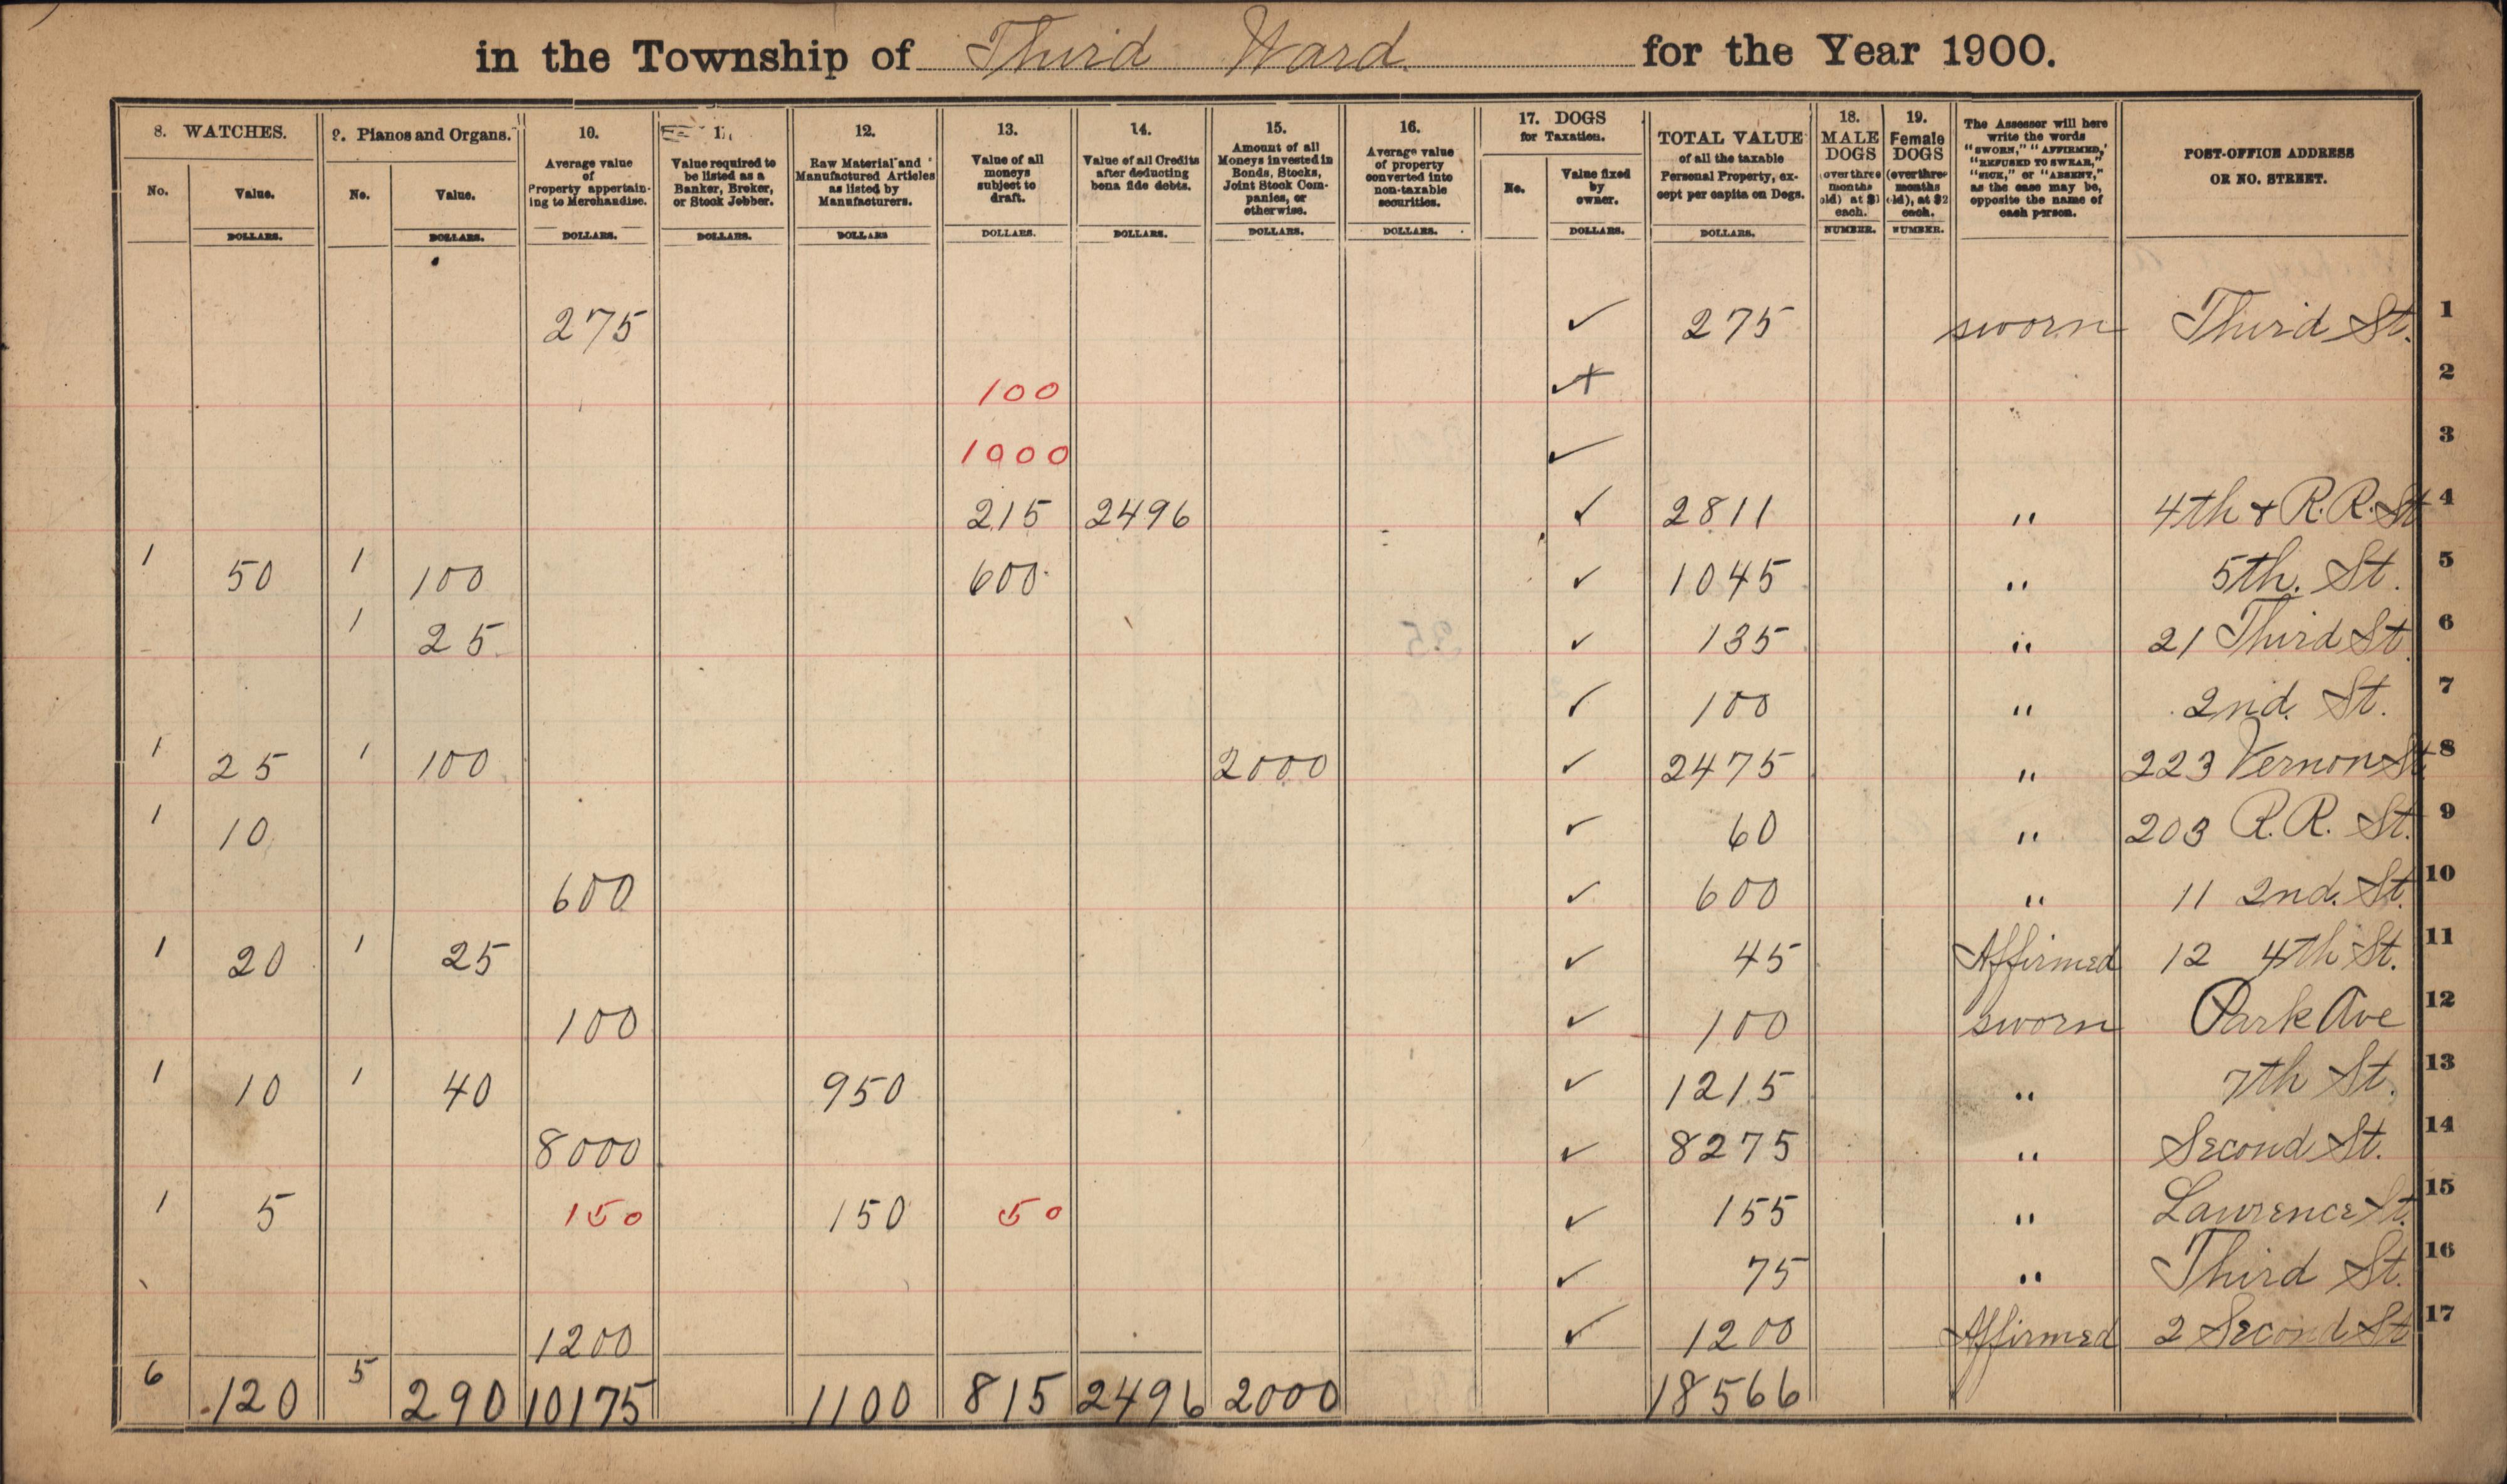 in the Township of Third Ward. for the Year 1900.
8. WATCHES.
No.
Value.
DOLLARS.
9. Pianos and Organs.
No.
Value.
DOLLARS.
10.
Average value
of
Property appertain-
ing to Merchandise.
DOLLARS.
11.
Value required to
be listed as a
Banker, Broker,
or Stock Jobber.
DOLLARS.
12.
Raw Material and
Manufactured Articles
as listed by
Manufacturers.
DOLLARS
13.
Value of all
moneys
subject to
draft.
DOLLARS.
14.
Value of all Credits
after deducting
bona fide debts.
DOLLARS.
15.
Amount of all
Moneys invested in
Bonds, Stocks,
Joint Stock Com-
panies, or
otherwise.
DOLLARS.
16.
Average value
of property
converted into
non-taxable
securities.
DOLLARS.
17. DOGS
for Taxation.
No.
Value fixed
by
owner.
DOLLARS.
TOTAL VALUE
of all the taxable
Personal Property, ex-
cept per capita on Dogs.
DOLLARS.
18.
MALE
DOGS
over three
months
old) at $1
each.
NUMBER.
19.
Female
DOGS
(over three
months
old), at $2
each.
NUMBER.
The Assessor will here
write the words
"SWORN," "AFFIRMED,"
"REFUSED TO SWEAR,"
"SICK," or "ABSENT,"
as the case may be,
opposite the name of
each person.
POST-OFFICE ADDRESS
OR NO. STREET.
275 ✓ 275 sworn Third St. 1
100 ✓+ 2
1000 ✓ 3
215 2496 ✓ 2811 " 4th & R.R. St 4
1 50 1 100 600 ✓ 1045 " 5th. St. 5
1 25 ✓ 135 " 21 Third St. 6
✓ 100 " 2nd. St. 7
1 25 1 100 2000 ✓ 2475 " 223 Vernon St. 8
1 10 ✓ 60 " 203 R.R. St. 9
600 ✓ 600 " 11 2nd. St. 10
1 20 1 25 ✓ 45 Affirmed 12 4th St. 11
100 ✓ 100 sworn Park Ave 12
1 10 1 40 950 ✓ 1215 " 7th St. 13
8000 ✓ 8275 " Second St. 14
1 5 150 150 50 ✓ 155 " Lawrence St. 15
✓ 75 " Third St. 16
1200 ✓ 1200 Affirmed 2 Second St 17
6 120 5 290 10175 1100 815 2496 2000 18566